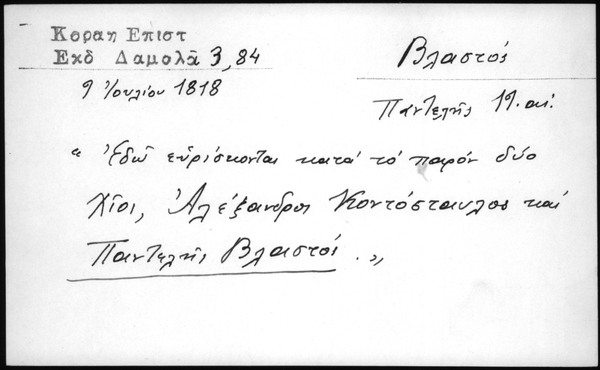 Κοραη Επιστ
Εκδ Δαμαλᾶ 3, 84
Βλαστός
9 Ἰουλίου 1818
Παντελῆς 19. αἰ.
" Ἐδῶ εὑρίσκονται κατά τό παρόν δύο
Χῖοι, Ἀλέξανδρος Κοντόσταυλος καί
Παντελῆς Βλαστός . „